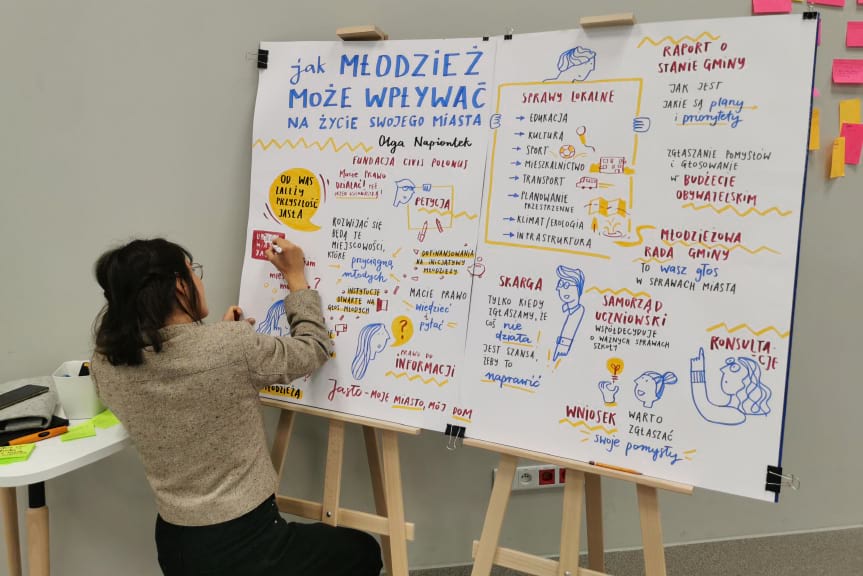 jak MŁODZIEŻ
MOŻE WPŁYWAĆ
NA ŻYCIE SWOJEGO MIASTA
Olga Napiontek
FUNDACJA CIVIS POLONUS
Macie PRAWO
DZIAŁAĆ!
OD WAS
ZALEŻY
PRZYSZŁOŚĆ
JASŁA
PETYCJA
ROZWIJAĆ SIĘ
BĘDĄ TE
MIEJSCOWOŚCI,
KTÓRE
przyciągną
młodych
DOFINANSOWANIA
NA INICJATYWY
MŁODZIEŻY
INSTYTUCJE
OTWARTE NA
GŁOS MŁODYCH
MACIE PRAWO
wiedzieć
i pytać
?
PRAWO DO
INFORMACJI
MŁODZIEŻĄ
JASŁO - MOJE MIASTO, MÓJ DOM
SPRAWY LOKALNE
→ EDUKACJA
→ KULTURA
→ SPORT
→ MIESZKALNICTWO
→ TRANSPORT
→ PLANOWANIE
PRZESTRZENNE
→ KLIMAT/EKOLOGIA
→ INFRASTRUKTURA
SKARGA
TYLKO KIEDY
ZGŁASZAMY, ŻE
COŚ nie
działa
JEST SZANSA,
ŻEBY TO
naprawić
RAPORT O
STANIE GMINY
JAK JEST
JAKIE SĄ plany
i priorytety
ZGŁASZANIE POMYSŁÓW
i GŁOSOWANIE
W BUDŻECIE
OBYWATELSKIM
MŁODZIEŻOWA
RADA GMINY
TO wasz głos
W SPRAWACH MIASTA
SAMORZĄD
UCZNIOWSKI
WSPÓŁDECYDUJE
O WAŻNYCH SPRAWACH
SZKOŁY
KONSULTACJE
WNIOSEK
WARTO
ZGŁASZAĆ
swoje pomysły